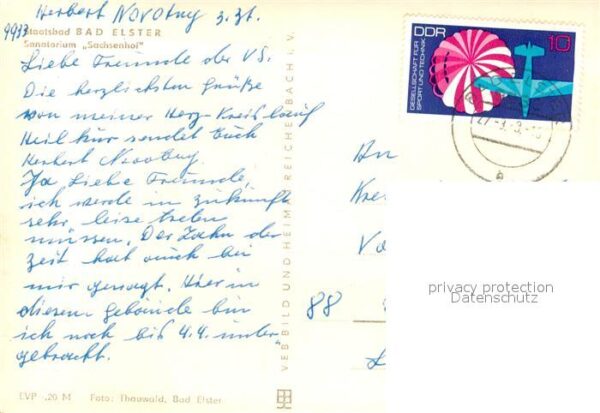 Herbert Novotny z. Zt.
9933
Staatsbad BAD ELSTER
Sanatorium „Sachsenhof"
Liebe Freunde der VS.
Die herzlichsten Grüße
von meiner Herz-Kreislauf
Heilkur sendet Euch
Herbert Novotny.
Ja Liebe Freunde,
ich werde in Zukunft
sehr leise treten
müssen. Der Zahn der
Zeit hat auch bei
mir genagt. Hier in
diesem Gebäude bin
ich noch bis 4.4. unter-
gebracht.
EVP -,20 M Foto: Thauwald, Bad Elster
VEB BILD UND HEIMAT REICHENBACH i. V.
DDR
10
GESELLSCHAFT FÜR
SPORT UND TECHNIK
An
Kre
Vo
88
privacy protection
Datenschutz